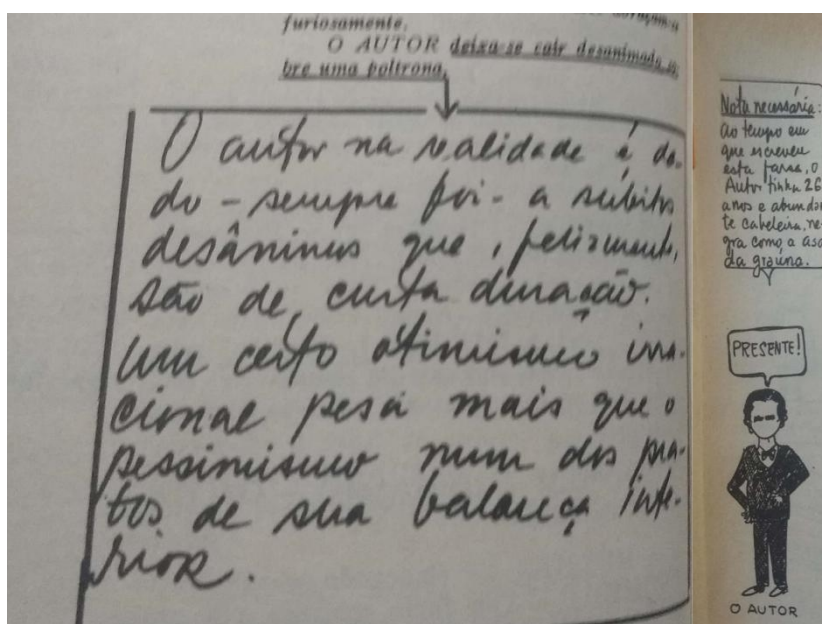 furiosamente.
O AUTOR deixa-se cair desanimado so
bre uma poltrona.
O autor na realidade é da-
do - sempre foi - a súbitos
desânimos que, felizmente,
são de curta duração.
Um certo otimismo irra-
cional pesa mais que o
pessimismo num dos pra-
tos de sua balança inte-
rior.
Nota necessária:
ao tempo em
que escreveu
esta farsa, o
Autor tinha 26
anos e abundan
te cabeleira, ne-
gra como a asa
da graúna.
PRESENTE!
O AUTOR